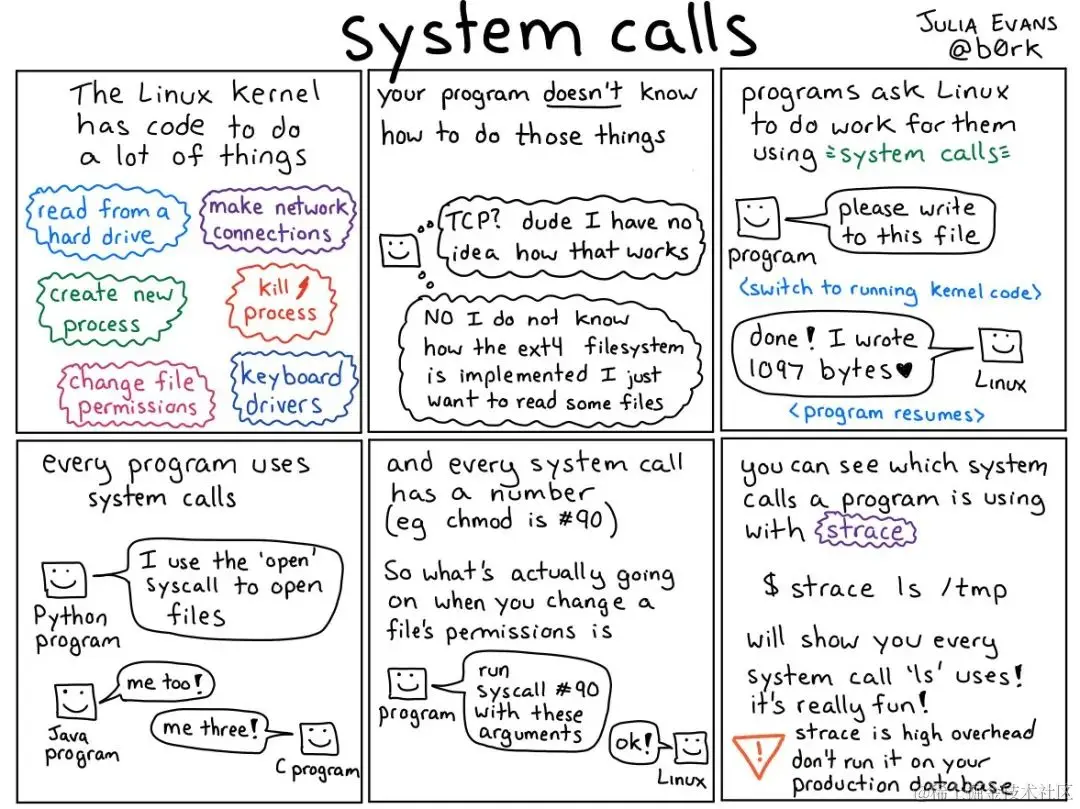 system calls
JULIA EVANS
@b0rk
The Linux kernel
has code to do
a lot of things
read from a
hard drive
make network
connections
create new
process
kill
process
change file
permissions
keyboard
drivers
your program doesn't know
how to do those things
TCP? dude I have no
idea how that works
NO I do not know
how the ext4 filesystem
is implemented I just
want to read some files
programs ask Linux
to do work for them
using =system calls=
please write
to this file
program
<switch to running kernel code>
done! I wrote
1097 bytes♥
Linux
<program resumes>
every program uses
system calls
I use the 'open'
syscall to open
files
Python
program
me too!
Java
program
me three!
C program
and every system call
has a number
(eg chmod is #90)
So what's actually going
on when you change a
file's permissions is
run
syscall #90
with these
arguments
program
ok!
Linux
you can see which system
calls a program is using
with strace
$ strace ls /tmp
will show you every
system call 'ls' uses!
it's really fun!
! strace is high overhead
don't run it on your
production database
@稀土掘金技术社区